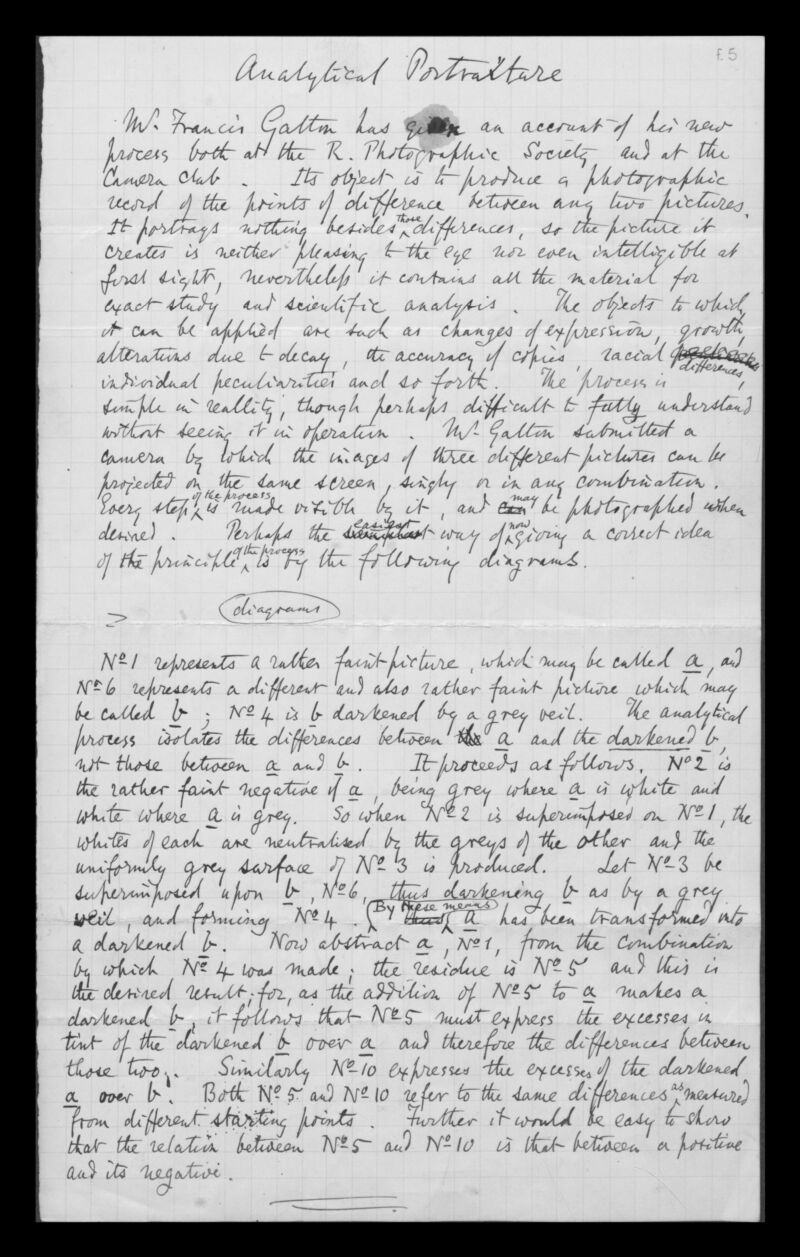 £5
Analytical Portraiture
Mr. Francis Galton has given an account of his new
process both at the R. Photographic Society and at the
Camera Club. Its object is to produce a photographic
record of the points of difference between any two pictures.
It portrays nothing besides those differences, so the picture it
creates is neither pleasing to the eye nor even intelligible at
first sight, nevertheless it contains all the material for
exact study and scientific analysis. The objects to which
it can be applied are such as changes of expression, growth,
alterations due to decay, the accuracy of copies, racial
differences,
individual peculiarities and so forth. The process is
simple in reallity, though perhaps difficult to fully understand
without seeing it in operation. Mr Galton submitted a
camera by which the images of three different pictures can be
projected on the same screen, singly or in any combination.
Every step of the process is made visible by it, and can may be photographed when
desired. Perhaps the easiest way of now giving a correct idea
of the principle of the process is by the following diagrams.
diagrams
No 1 represents a rather faint picture, which may be called a, and
No 6 represents a different and also rather faint picture which may
be called b; No 4 is b darkened by a grey veil. The analytical
process isolates the differences between the a and the darkened b,
not those between a and b. It proceeds as follows. No 2 is
the rather faint negative of a, being grey where a is white and
white where a is grey. So when No 2 is superimposed on No 1, the
whites of each are neutralised by the greys of the other and the
uniformly grey surface of No 3 is produced. Let No 3 be
superimposed upon b, No 6, thus darkening b as by a grey
veil, and forming No 4. By these means thus a has been transformed into
a darkened b. Now abstract a, No 1, from the combination
by which No 4 was made; the residue is No 5 and this is
the desired result; for, as the addition of No 5 to a makes a
darkened b, it follows that No 5 must express the excesses in
tint of the darkened b over a and therefore the differences between
those two. Similarly No 10 expresses the excesses of the darkened
a over b. Both No 5 and No 10 refer to the same differences as measured
from different starting points. Further it would be easy to show
that the relation between No 5 and No 10 is that between a positive
and its negative.